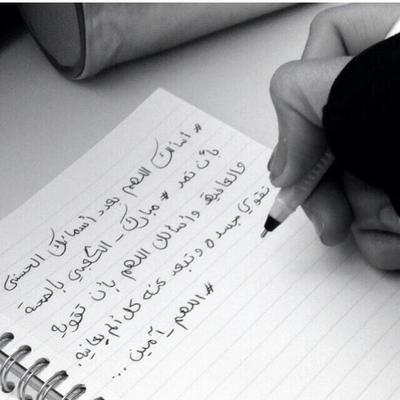 # أسألك اللهم بعدد أسمائك الحسنى
بأن تمد # مبارك_الكعبي بالصحة
والعافية وأسألك اللهم بأن تقويه
تقوي جسده وتبعد عنه كل ألم يعانيه.
# اللهم_آمين ...